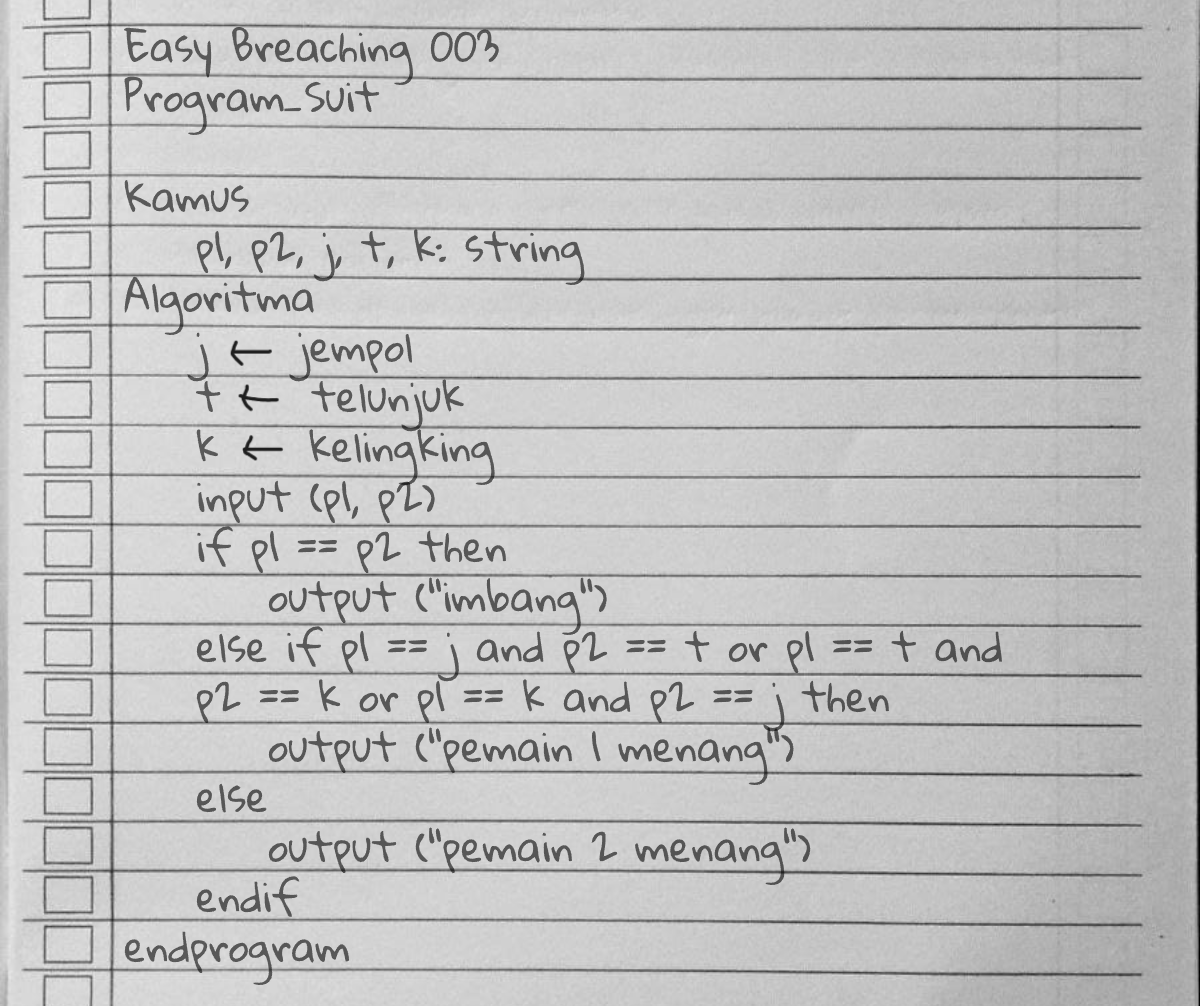 Easy Breaching 003
Program_Suit
Kamus
p1, p2, j, t, k: string
Algoritma
j ← jempol
t ← telunjuk
k ← kelingking
input (p1, p2)
if p1 == p2 then
output ("imbang")
else if p1 == j and p2 == t or p1 == t and
p2 == k or p1 == k and p2 == j then
output ("pemain 1 menang")
else
output ("pemain 2 menang")
endif
endprogram